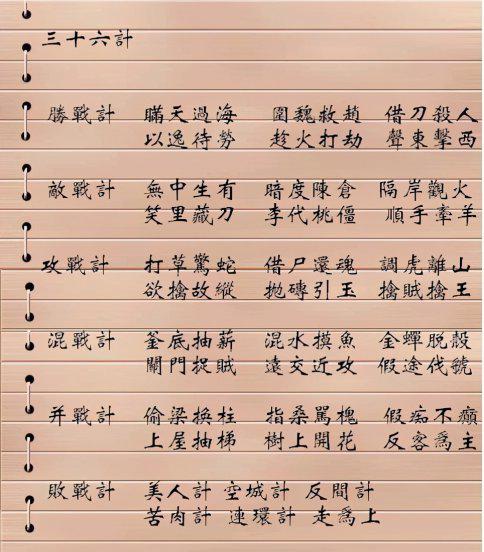 三十六計
勝戰計 瞞天過海 圍魏救趙 借刀殺人
以逸待勞 趁火打劫 聲東擊西
敵戰計 無中生有 暗度陳倉 隔岸觀火
笑里藏刀 李代桃僵 順手牽羊
攻戰計 打草驚蛇 借尸還魂 調虎離山
欲擒故縱 拋磚引玉 擒賊擒王
混戰計 釜底抽薪 混水摸魚 金蟬脱殼
關門捉賊 遠交近攻 假途伐虢
并戰計 偷梁換柱 指桑罵槐 假痴不癲
上屋抽梯 樹上開花 反客為主
敗戰計 美人計 空城計 反間計
苦肉計 連環計 走為上